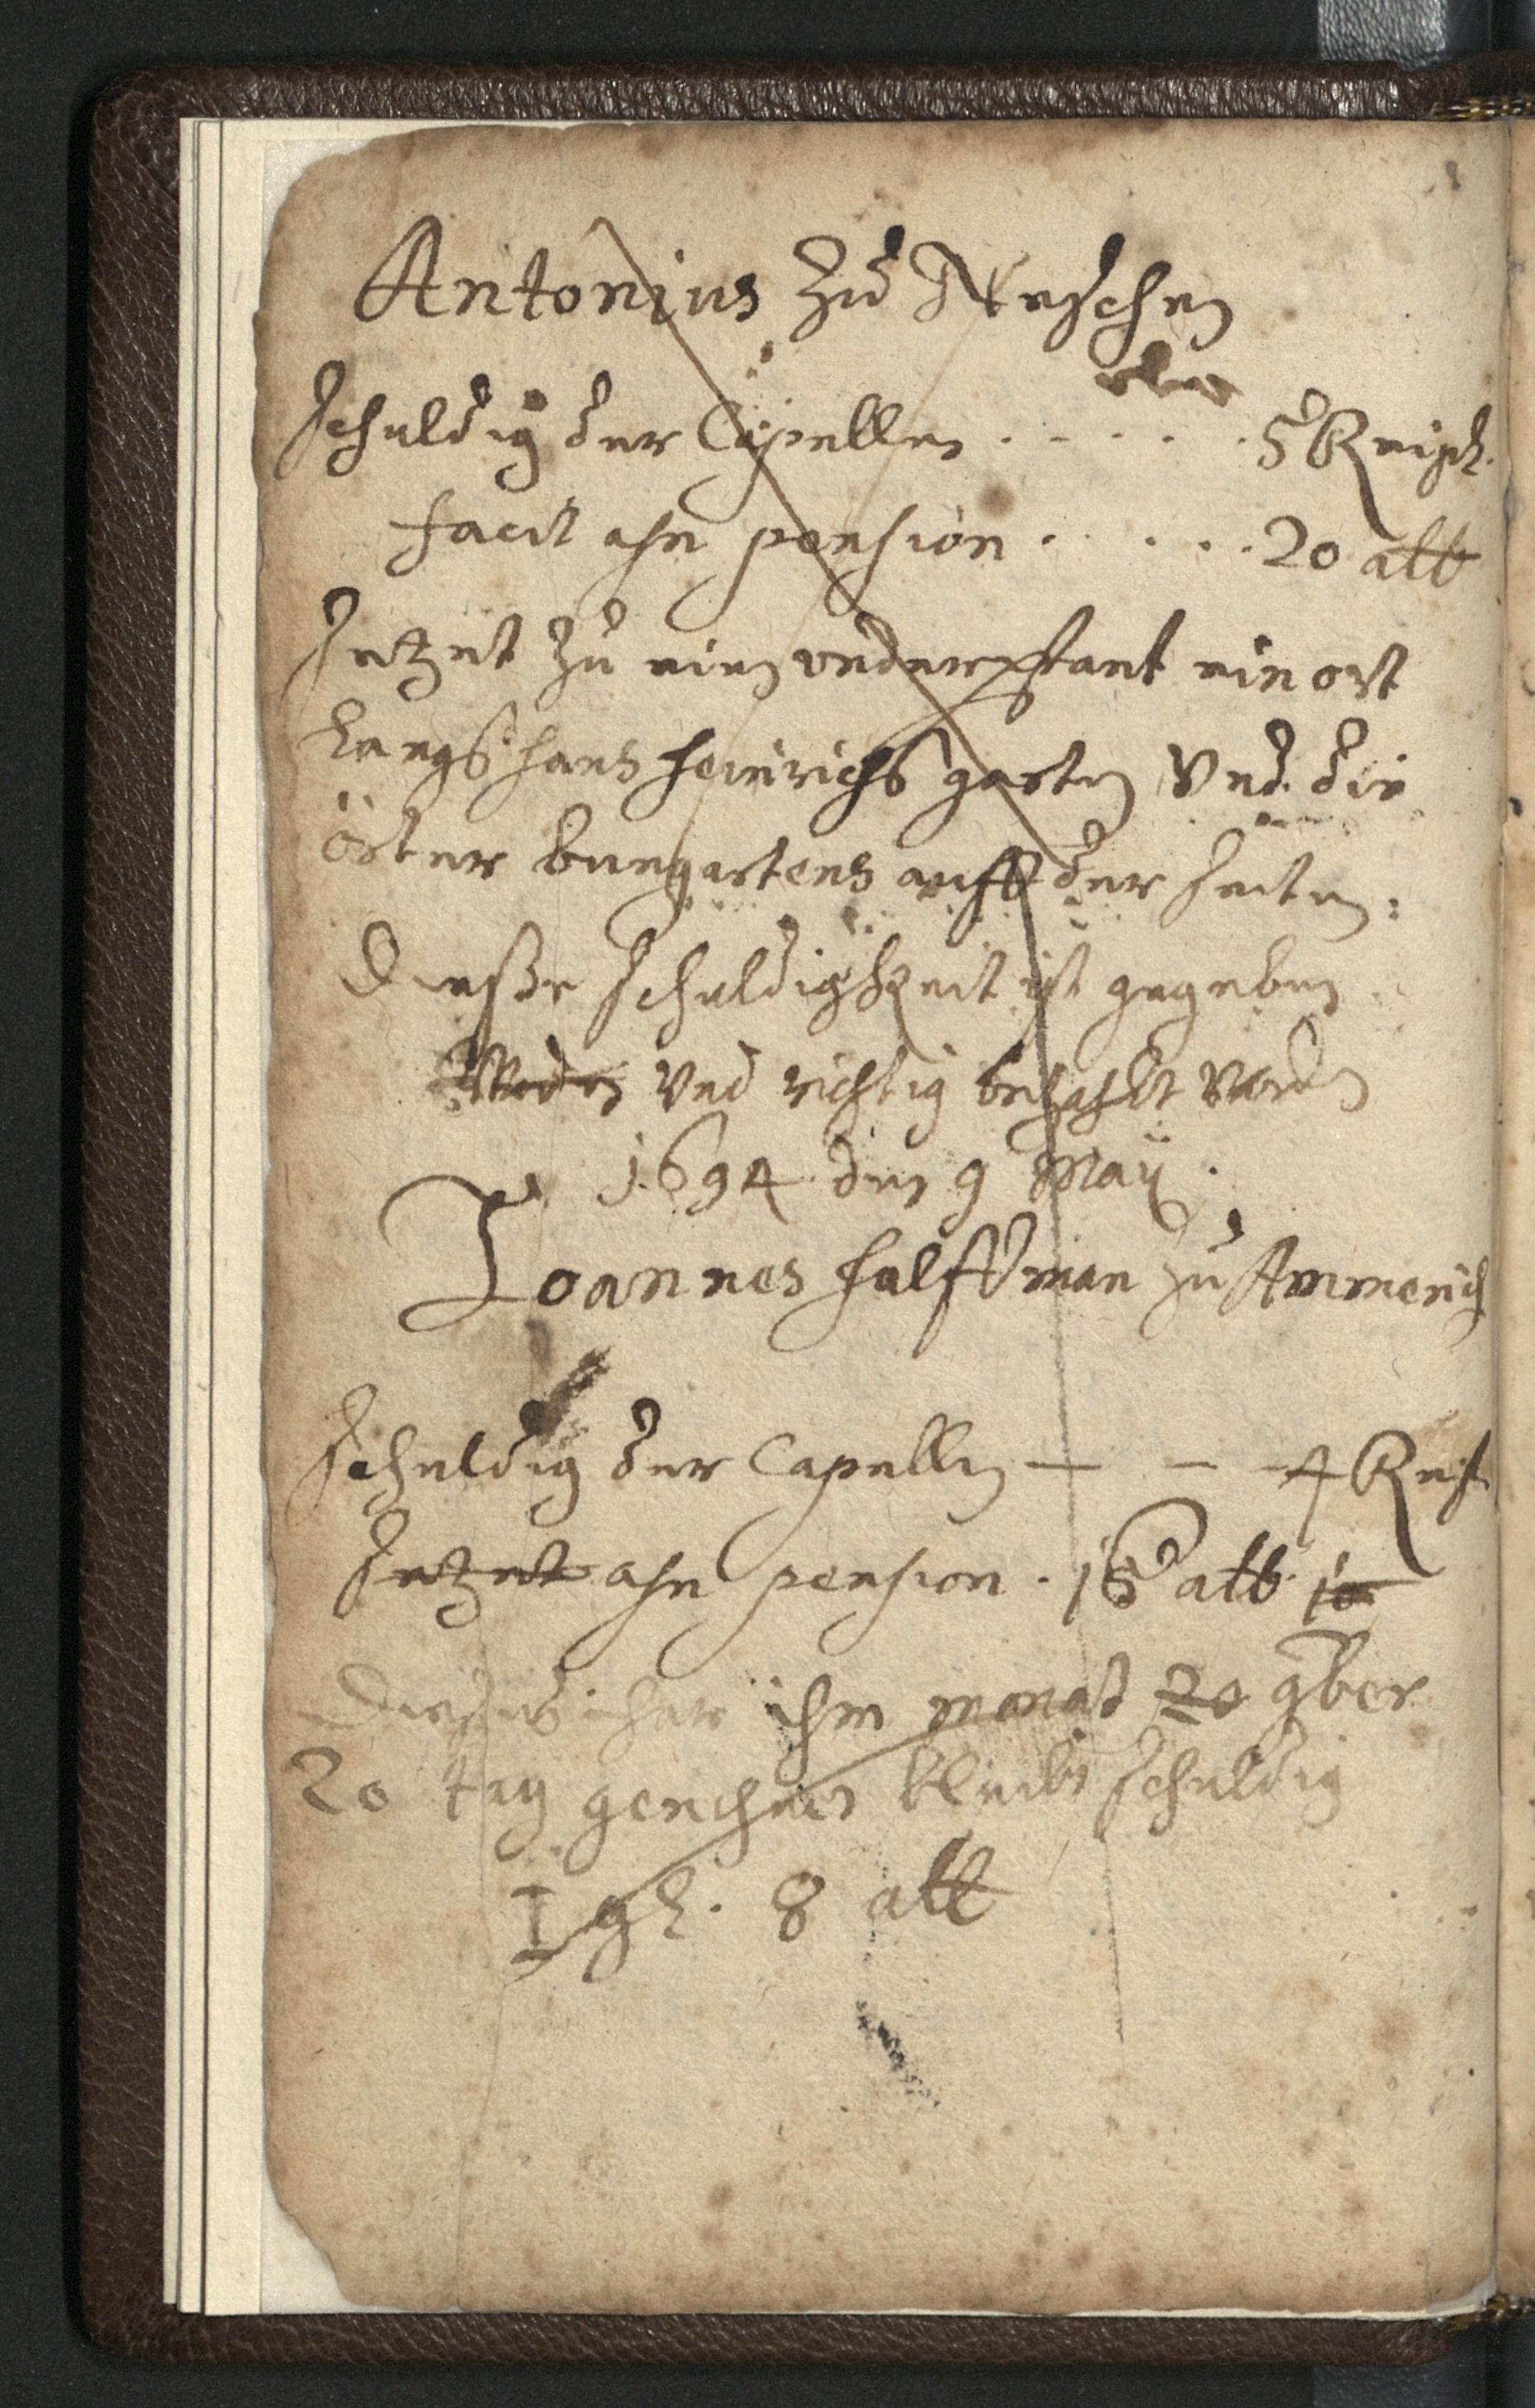 Antonius zu Neschen
schuldig der Capellen . - . . . . 5 Reichs.
facit ahn pension . . . . . 20 alb
setzet zu einen underpfant ein ort
Langs hans heinrichs garten und die
örter bungartens auff der heiten:
Diesse schuldigkeit ist gegeben
und richtig bezahlt worden
1694 den 9 Maÿ.
Joannes halffman zu Ammerich
schuldig der Capellen — - - 4 Reichs
setzet ahn pension . 16 alb.
Dieses ihar ihm monat 20 9ber
20 tag bleibt schuldig
I gl. 8 alb